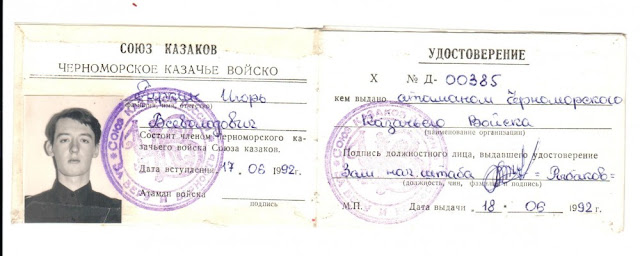 СОЮЗ КАЗАКОВ
ЧЕРНОМОРСКОЕ КАЗАЧЬЕ ВОЙСКО
Игорь
Всеволодович
Состоит членом Черноморского ка-
зачьего войска Союза казаков.
Дата вступления 17. 06 1992г.
Атаман войска
подпись
УДОСТОВЕРЕНИЕ
Х № Д- 00385
кем выдано атаманом Черноморского
Казачьего Войска
(наименование организации)
Подпись должностного лица, выдавшего удостоверение
Зам нач. штаба =Рыбаков=
(должность, чин, фамилия, подпись)
М.П. Дата выдачи 18 · 06 1992 г.